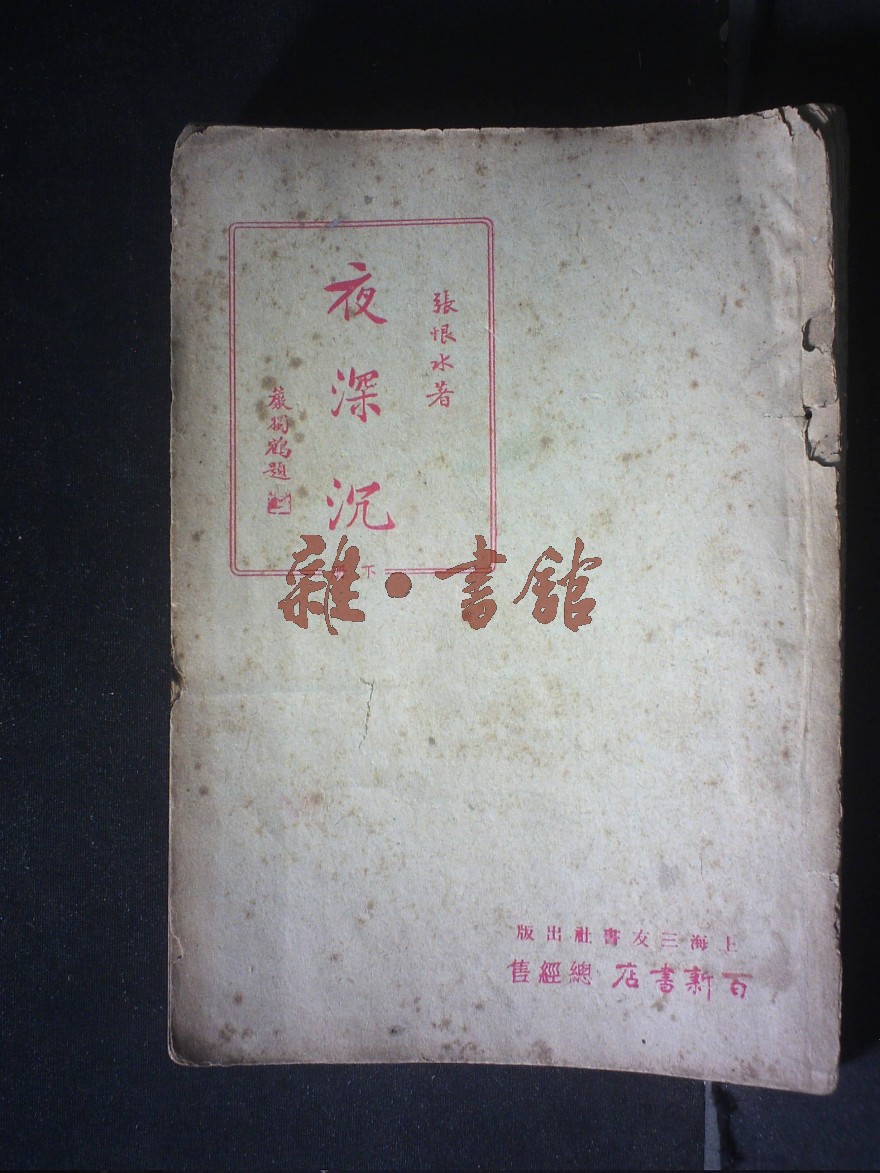 張恨水著
夜深沉
嚴獨鶴題
下
雜·書館
上海三友書社出版
百新書店總經售